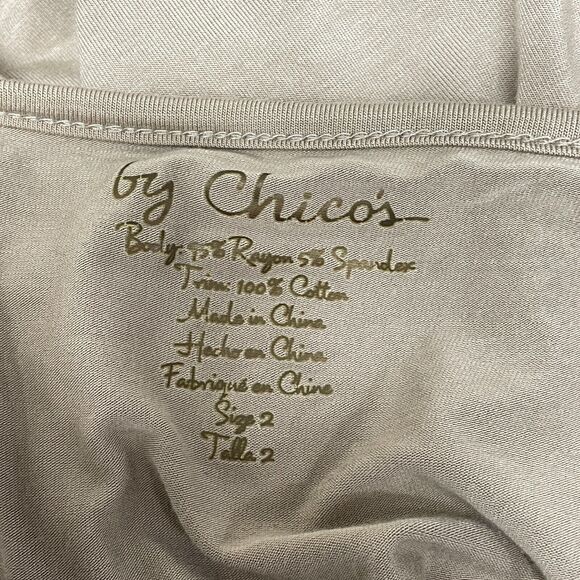 by Chico's
Body: 95% Rayon 5% Spandex
Trim: 100% Cotton
Made in China
Hecho en China
Fabriqué en Chine
Size 2
Talla 2